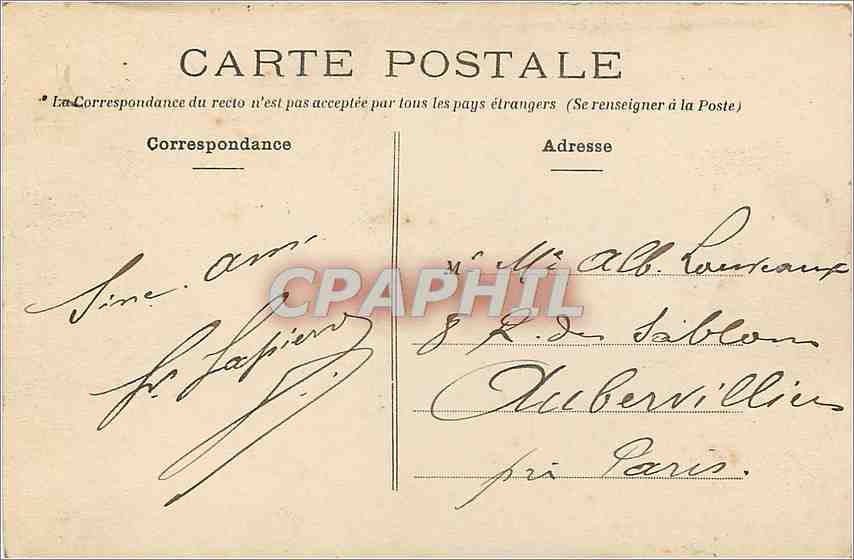 CARTE POSTALE
La Correspondance du recto n'est pas acceptée par tous les pays étrangers (Se renseigner à la Poste)
Correspondance
Sinc. ami.
Adresse
M Alb.
8 R. des Sablons
Aubervilliers
près Paris.
CPAPHIL